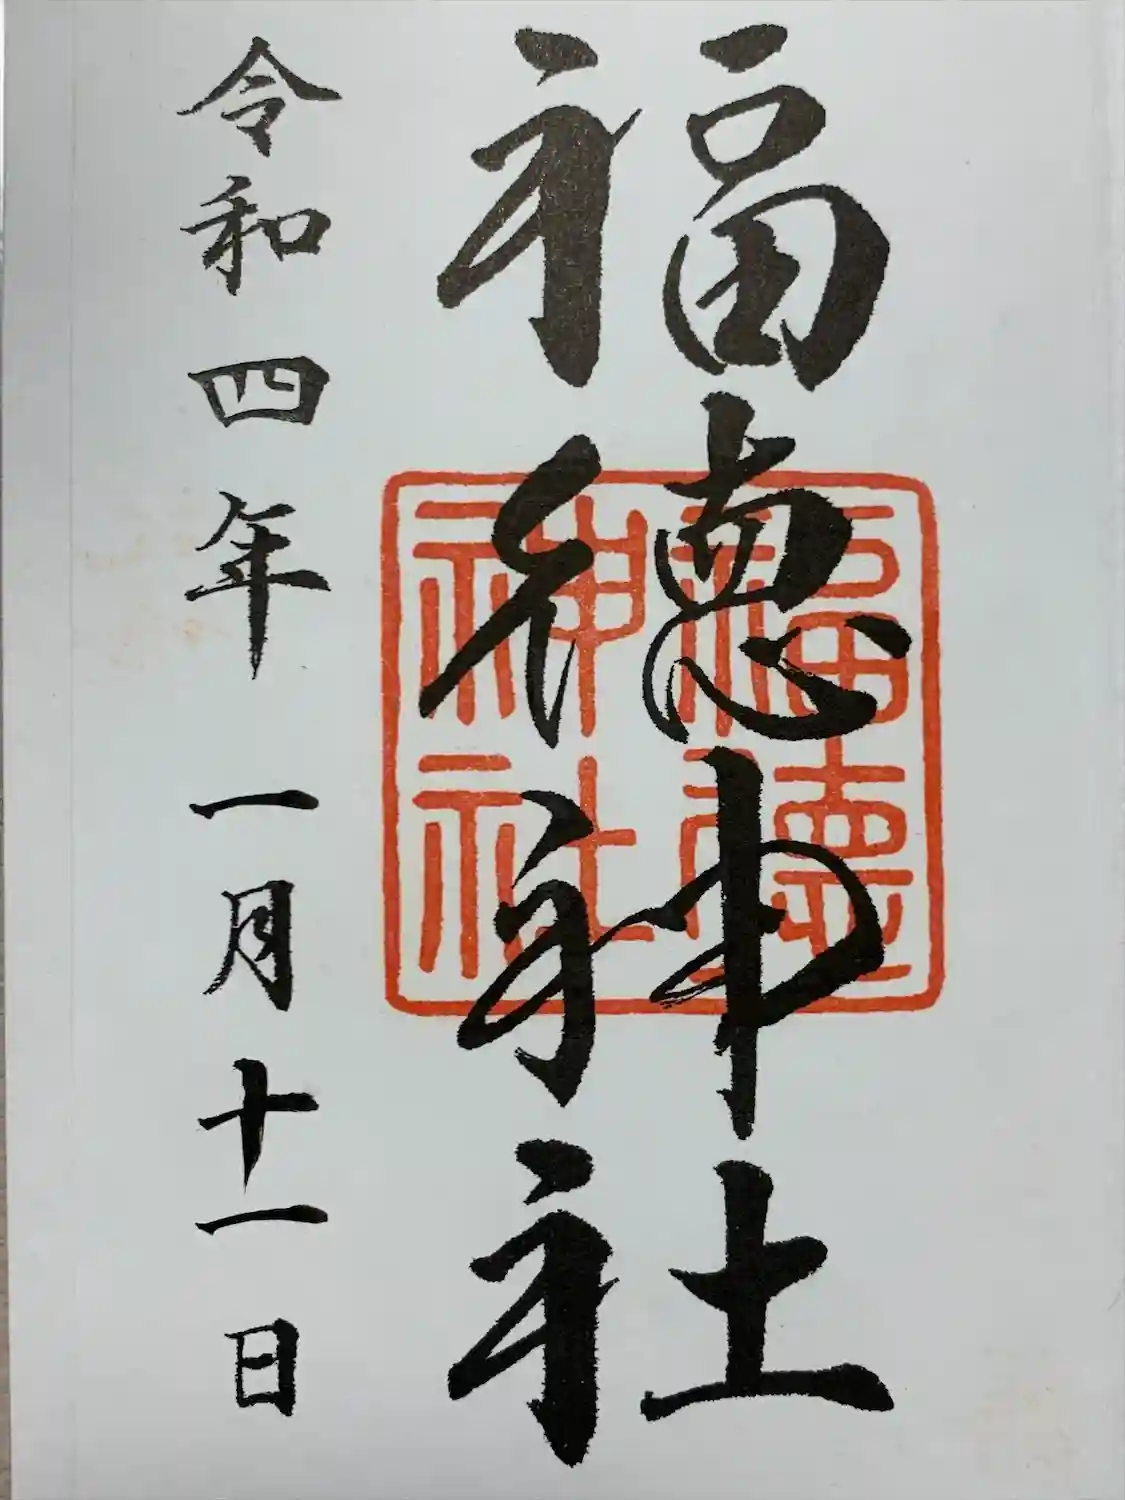 福徳神社
福徳神社
令和四年一月十一日